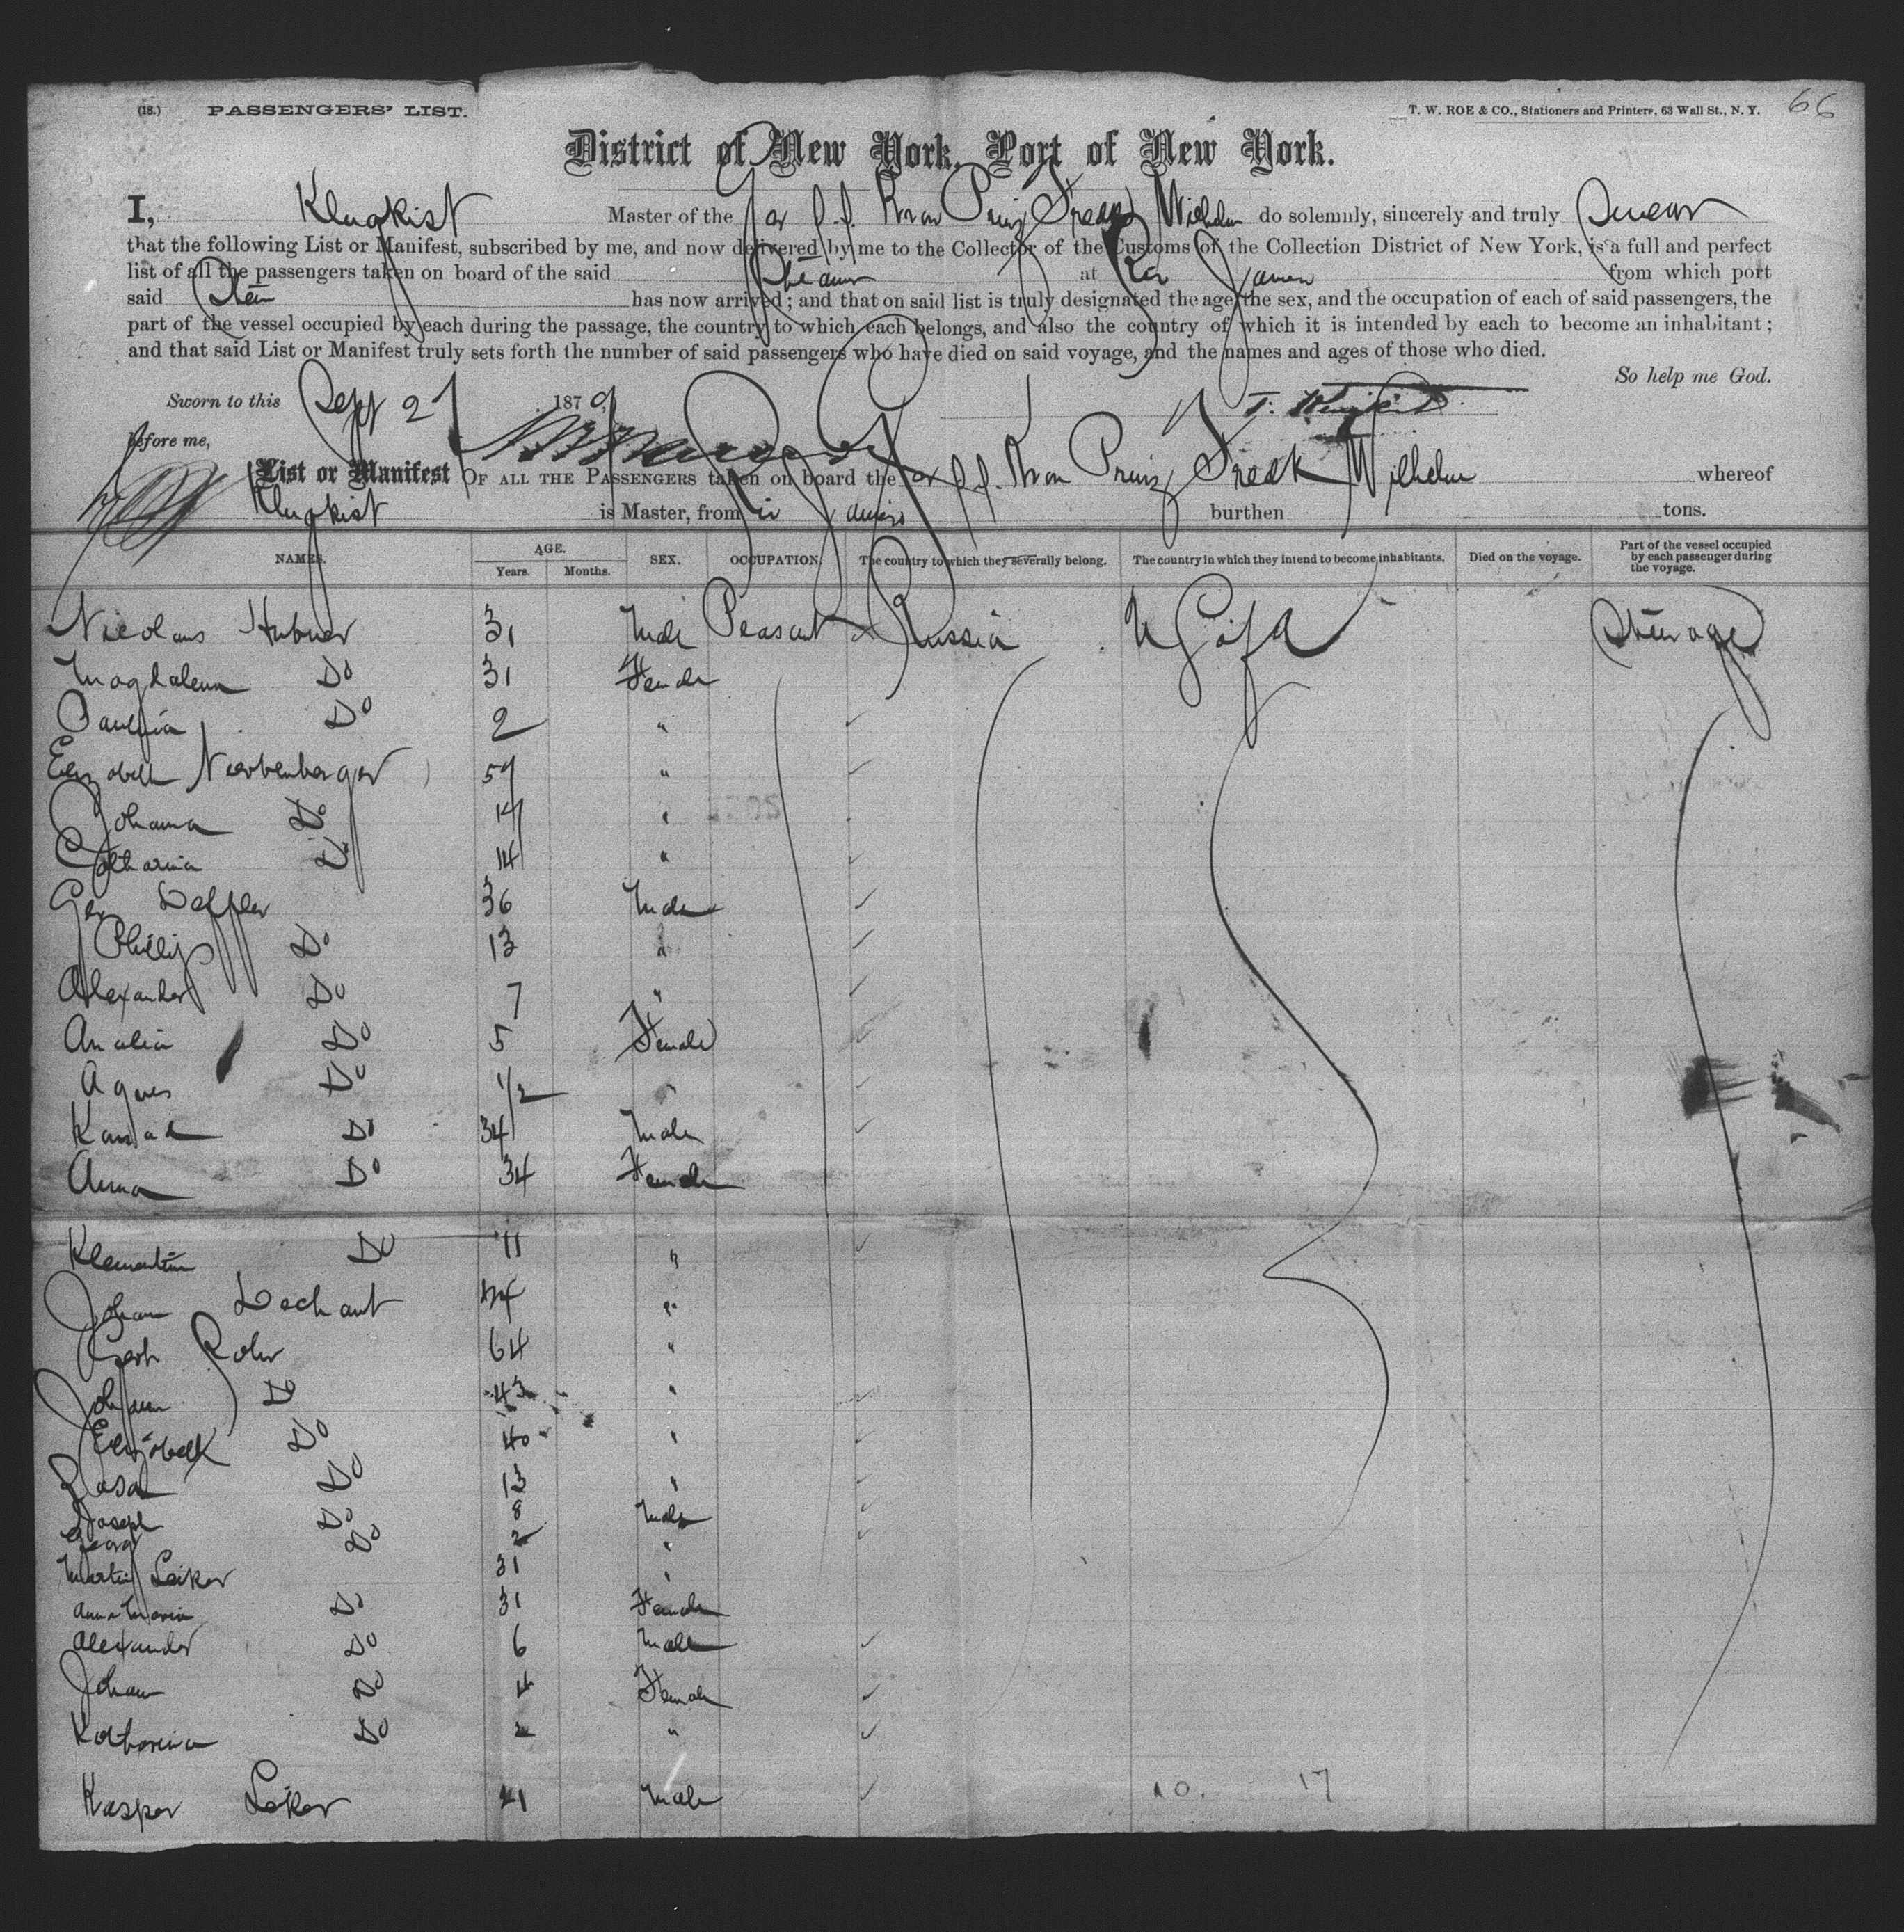 (18.) PASSENGERS' LIST. T. W. ROE & CO., Stationers and Printers, 63 Wall St., N. Y. 66
District of New York, Port of New York.
I, Klugkist Master of the Prinz Wilhelm do solemnly, sincerely and truly Swear
that the following List or Manifest, subscribed by me, and now delivered by me to the Collector of the Customs of the Collection District of New York, is a full and perfect
list of all the passengers taken on board of the said at from which port
said has now arrived; and that on said list is truly designated the age, the sex, and the occupation of each of said passengers, the
part of the vessel occupied by each during the passage, the country to which each belongs, and also the country of which it is intended by each to become an inhabitant;
and that said List or Manifest truly sets forth the number of said passengers who have died on said voyage, and the names and ages of those who died.
So help me God.
Sworn to this Sept 27 1879
before me,
List or Manifest OF ALL THE PASSENGERS taken on board the Prinz Fredk Wilhelm whereof
Klugkist is Master, from burthen tons.
NAMES. AGE. SEX. OCCUPATION. The country to which they severally belong. The country in which they intend to become inhabitants. Died on the voyage. Part of the vessel occupied by each passenger during the voyage.
Years. Months.
Nicolaus Hubner 31 Male Peasant Russia Steerage
Magdalena Do 31 Female
Do 2 "
Elizabeth 59 "
Johanna Do 14 "
Catharina Do 14 "
36 Male
Phillip Do 13 "
Alexander Do 7 "
Do 5 Female
Agnes Do 1/2 "
Konrad Do 34 Male
Anna Do 34 Female
Do 11 "
Johann Dechant "
Rohr 64 "
Johann Do 43 "
Elizabeth Do 40 "
Rosa Do 13 "
Joseph Do 8 Male
Georg Do 2 "
Martin Leiker 31 "
Anna Maria Do 31 Female
Alexander Do 6 Male
Johann Do 4 Female
Katharina Do 2 "
Kaspar Leiker 21 Male
10. 17